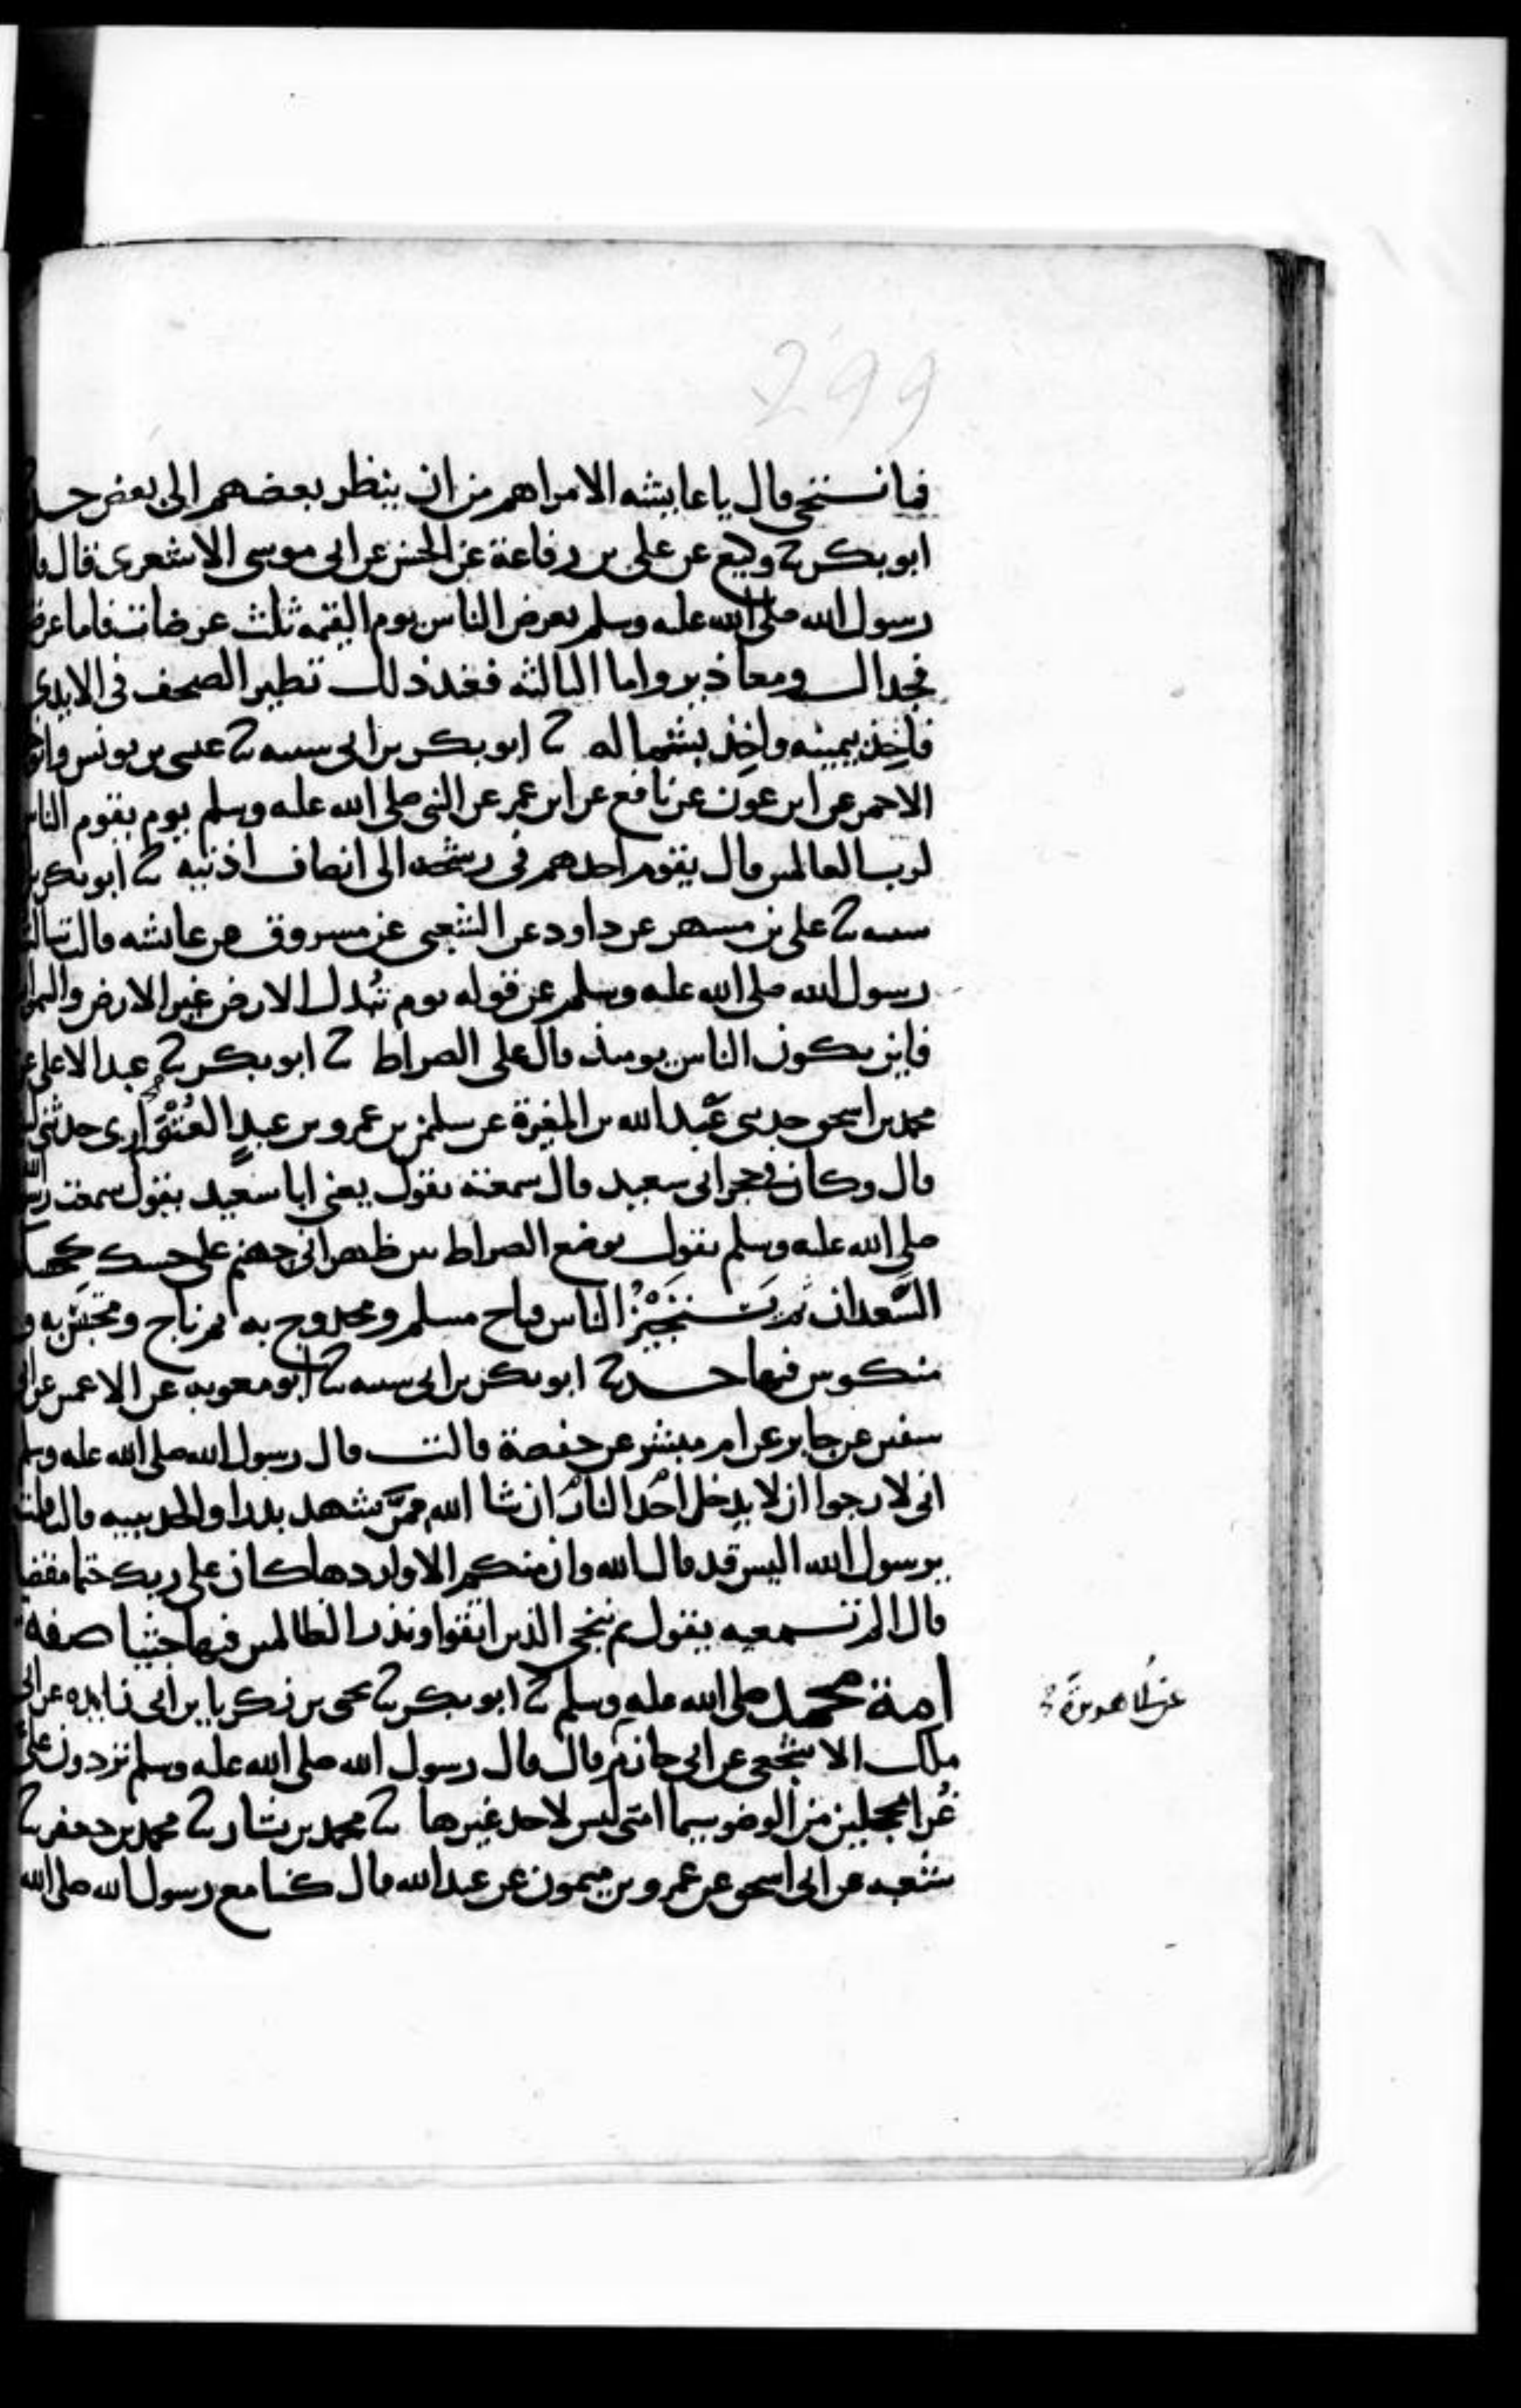 299
فما نستحي قال يا عايشه الامر اهم من ان ينظر بعضهم الى بعض حد
ابو بكر نا وكيع عن علي بن رفاعة عن الحسن عن ابي موسى الاشعري قال
رسول الله صلى الله عليه وسلم يعرض الناس يوم القيمه ثلث عرضات فاما عرض
فجدال ومعاذير واما الثالثه فعند ذلك تطير الصحف في الايدي
فاخذ بيمينه واخذ بشماله نا ابو بكر بن ابي شيبه نا عيسى بن يونس
الاحمر عن ابن عون عن نافع عن ابن عمر عن النبي صلى الله عليه وسلم يوم يقوم الناس
لرب العالمين قال يقوم احدهم في رشحه الى انصاف اذنيه نا ابو بكر
شيبه نا علي بن مسهر عن داود عن الشعبي عن مسروق عن عايشه قالت
رسول الله صلى الله عليه وسلم عن قوله يوم تُبدل الارض غير الارض والسموا
فاين يكون الناس يوميذ قال على الصراط نا ابو بكر نا عبد الاعلى
محمد بن اسحق حدثني عبيد الله بن المغيرة عن سليمن بن عمرو بن عبدٍ العُتْوَاري حدثني
قال وكان في حجر ابي سعيد قال سمعته يقول يعني ابا سعيد يقول سمعت
صلى الله عليه وسلم يقول يوضع الصراط بين ظهراني جهنم على حسك كحسك
السَّعدان ثم يَستجيزُ الناس فناج مسلم ومخدوج به ثم ناج ومحتبس به
منكوس فيها حد نا ابو بكر بن ابي شيبه نا ابو معويه عن الاعمش عن ابي
سفين عن جابر عن ام مبشر عن حفصة قالت قال رسول الله صلى الله عليه وسلم
اني لارجوا ان لا يدخل احد النار ان شا الله ممَّن شهد بدرا والحديبيه قالت
يرسول الله اليس قد قال الله وان منكم الا واردها كان على ربك حتما مقضيا
قال الم تسمعيه يقول ثم ننجي الذين اتقوا ونذر الظالمين فيها جثيا صفة
امة محمد صلى الله عليه وسلم نا ابو بكر نا يحيى بن زكريا بن ابي زايده عن ابي
ملك الاشجعي عن ابي حازم قال قال رسول الله صلى الله عليه وسلم تردون علي
عن ابي هريرة
غُرا محجلين من الوضو سيما امتي ليس لاحد غيرها نا محمد بن بشار نا محمد بن جعفر نا
شعبه عن ابي اسحق عن عمرو بن ميمون عن عبد الله قال كنا مع رسول الله صلى الله